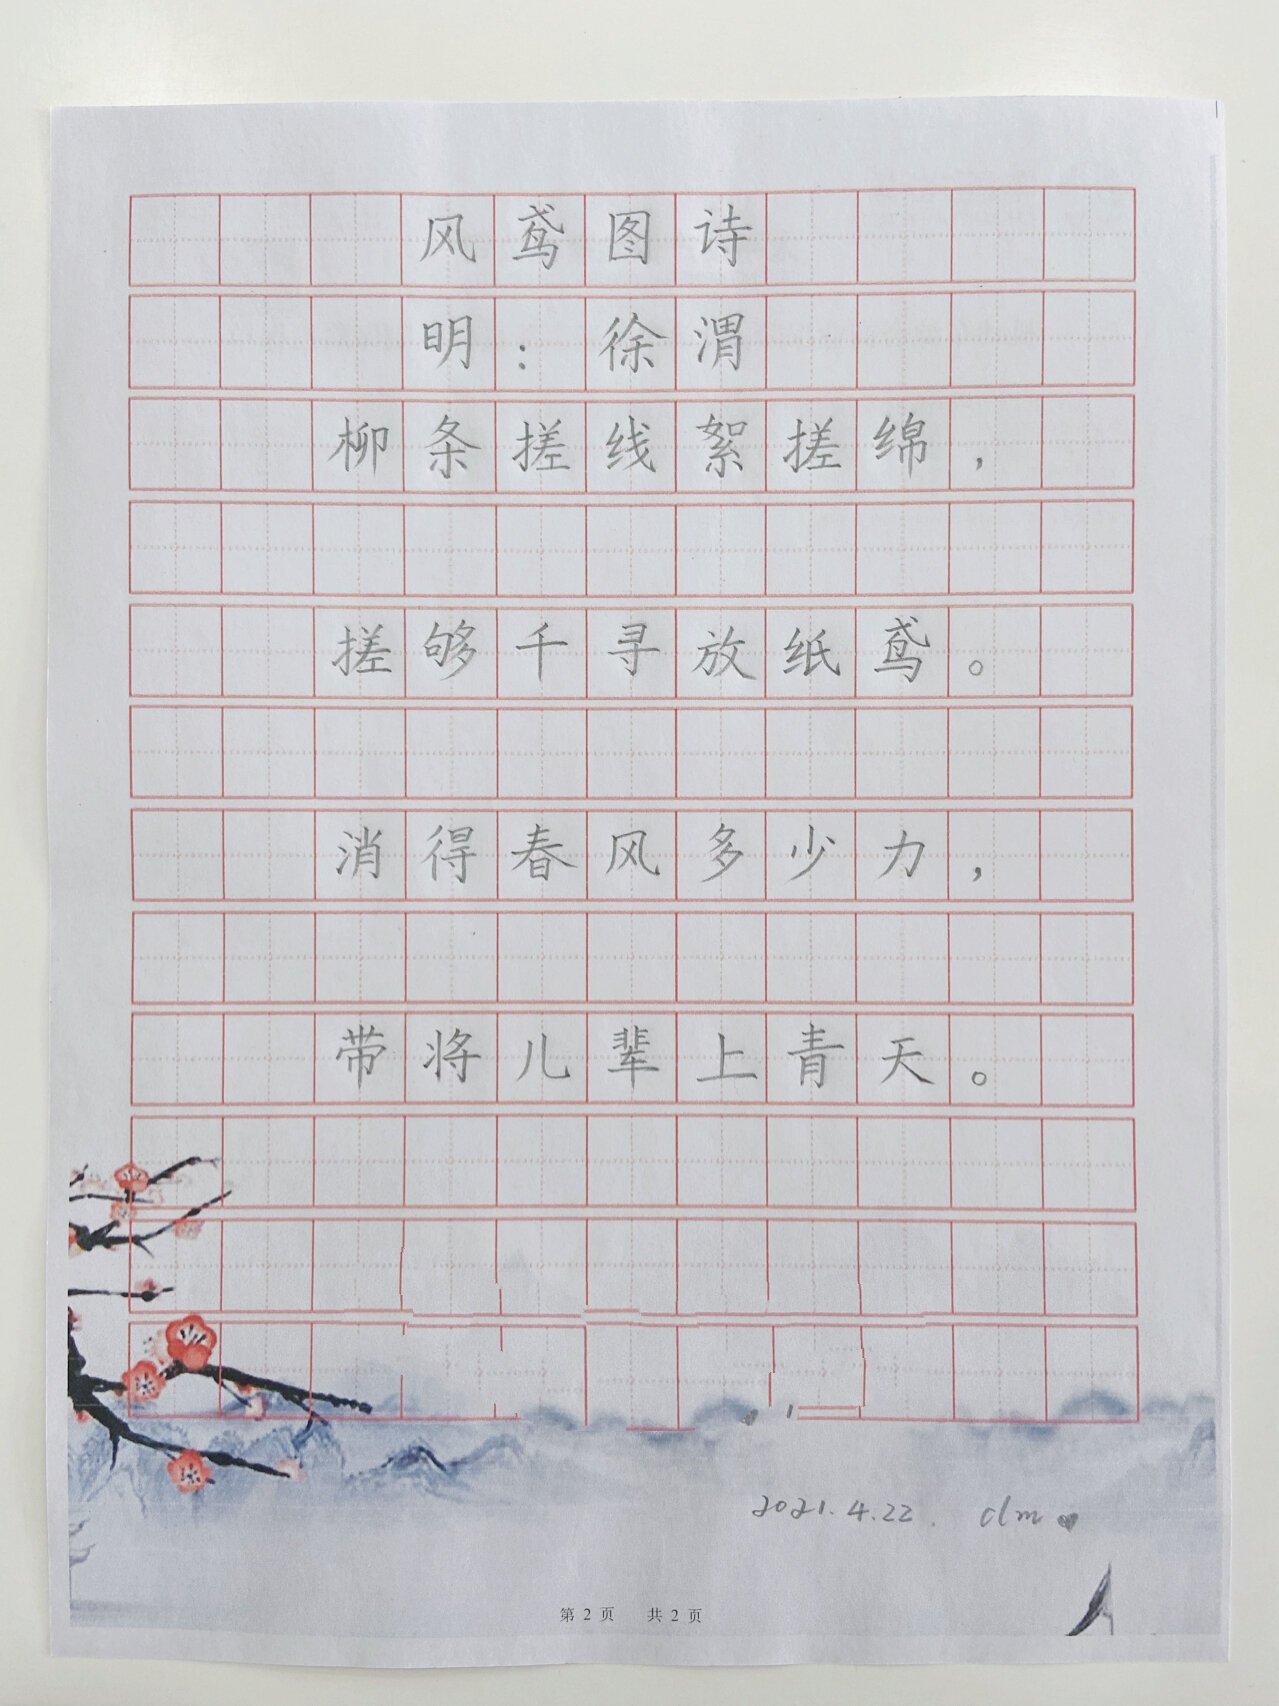 风鸢图诗
明：徐渭
柳条搓线絮搓绵，
搓够千寻放纸鸢。
消得春风多少力，
带将儿辈上青天。
2021.4.22. dm
第 2 页 共 2 页